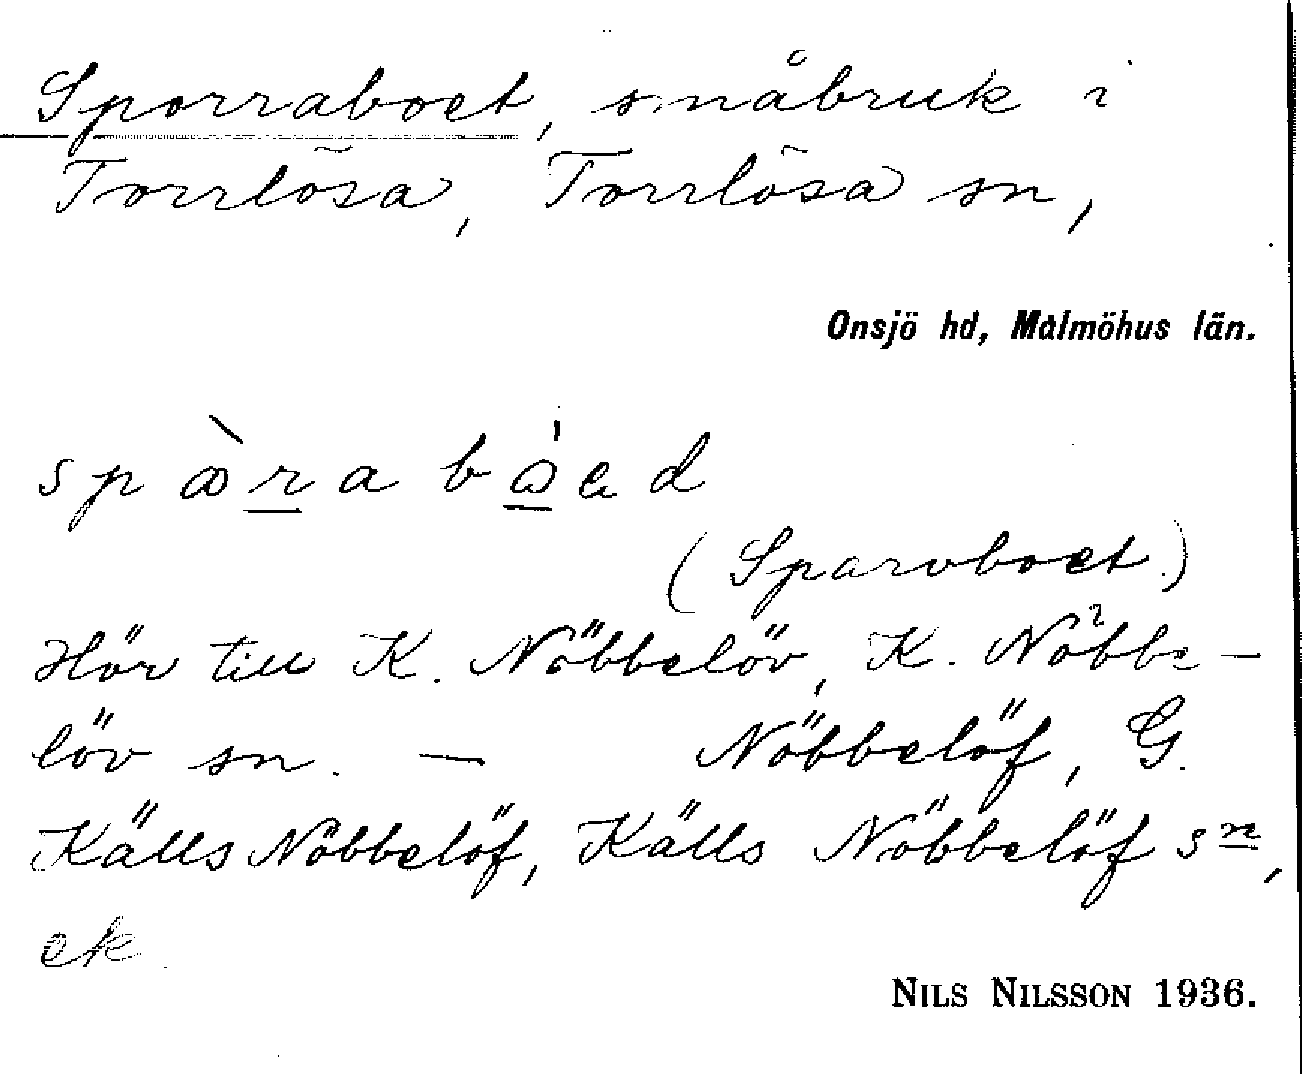 Sporraboet, småbruk i
Torrlösa, Torrlösa sn,
Onsjö hd, Malmöhus län.
(Sparvboet.)
Hör till K. Nöbbelöv, K. Nöbbe-
löv sn. — Nöbbelöf, G.
Källs Nöbbelöf, Källs Nöbbelöf sn,
ek
NILS NILSSON 1936.